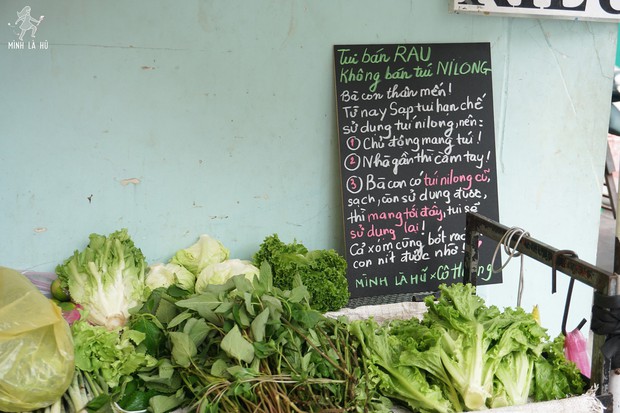 MÌNH LÀ HŨ
Tui bán RAU
Không bán túi NILONG
Bà con thân mến!
Từ nay Sạp tui hạn chế
sử dụng túi nilong, nên:
1 Chủ động mang túi!
2 Nhà gần thì cầm tay!
3 Bà con có túi nilong cũ,
sạch, còn sử dụng được,
thì mang tới đây, tui sẽ
sử dụng lại!
Cả xóm cùng bớt rác
con nít được nhờ
MÌNH LÀ HŨ x Cô